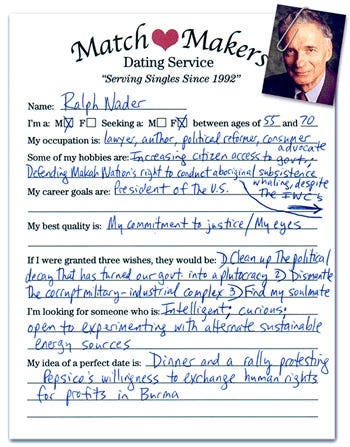 Match Makers
Dating Service
"Serving Singles Since 1992"
Name: Ralph Nader
I'm a: M F Seeking a: M F between ages of 55 and 70
My occupation is: lawyer, author, political reformer, consumer advocate
Some of my hobbies are: Increasing citizen access to govt,
Defending Makah Nation's right to conduct aboriginal subsistence
whaling, despite
My career goals are: President of the U.S. The IWC's
My best quality is: My commitment to justice/My eyes
If I were granted three wishes, they would be: 1) Clean up The political
decay That has turned our govt into a plutocracy 2) Dismantle
The corrupt military-industrial complex 3) Find my soulmate
I'm looking for someone who is: Intelligent; curious;
open to experimenting with alternate sustainable
energy sources
My idea of a perfect date is: Dinner and a rally protesting
Pepsico's willingness to exchange human rights
for profits in Burma